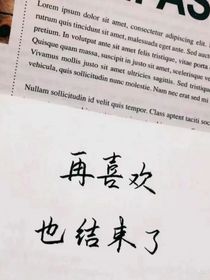 Lorem ipsum dolor sit amet, consectetur adipiscing
rutrum quis tincidunt sit amet, malesuada eget ante. Sed
pretium. In voluptat ante sit amet felis tristique
Quisque quam massa, suscipit sit amet, scelerisque
Vivamus mollis justo sit amet ultricies sagittis. Sed
vehicula, quis sollicitudin nunc molestie. Nam nec erat sed mi
Nullam sollicitudin id velit quis tempor. Class aptent taciti soc
再喜欢
也结束了